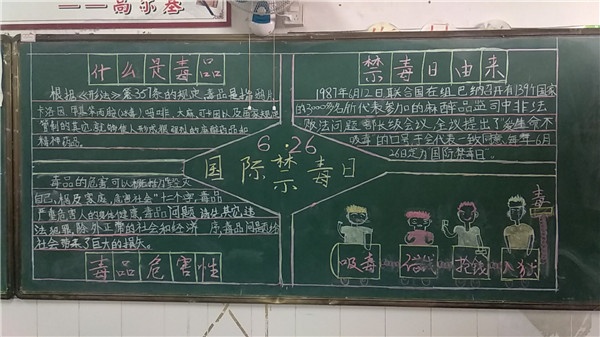 ——高尔基
什么是毒品
根据《形法》第357条的规定,毒品是指鸦片
因、甲基苯丙胺(冰毒)吗非、大麻、可卡因以及国家规定
管制的其它能够使人形成瘾癖的麻醉药品和
精神药品。
禁毒日由来
1987年6月12日联合国在 召开有 个国家
的3000多名代表参加的麻醉品 非法
问题部长级会议,会议提出了"爱生命不
吸毒"的口号 会代表一致同意,每年6月
26日定为国际禁毒日。
6·26
国际禁毒日
毒品的危害可以概括为"毁灭
自己,祸及家庭,危害社会"十二个字,毒品
严重危害人的身体健康,毒品问题 其它违
法犯罪,破坏正常的社会和经济 序,毒品问题给
社会带来了巨大的损失。
毒品危害性
毒
吸毒
借钱
抢钱
入狱